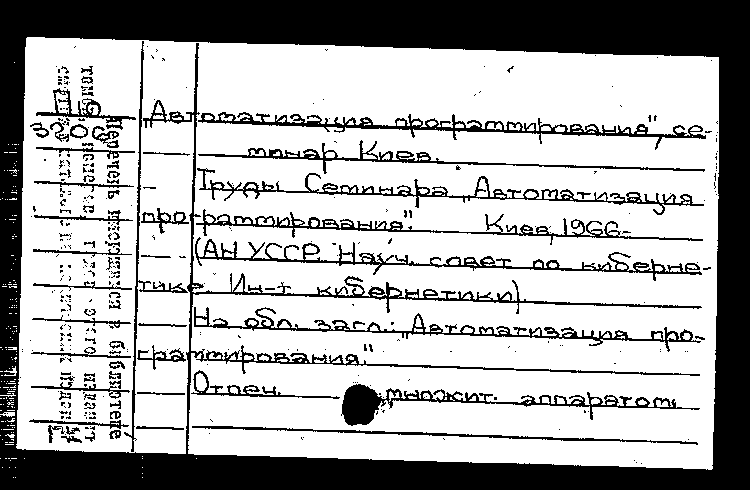 „Автоматизация программирования", се-
минар. Киев.
Труды Семинара „Автоматизация
программирования". Киев, 1966-
(АН УССР. Науч. совет по киберне-
тике. Ин-т кибернетики).
На обл. загл.: „Автоматизация про-
граммирования."
Отпеч. множит. аппаратом.
Перечень имеющихся в библиотеке
томов, этого издания